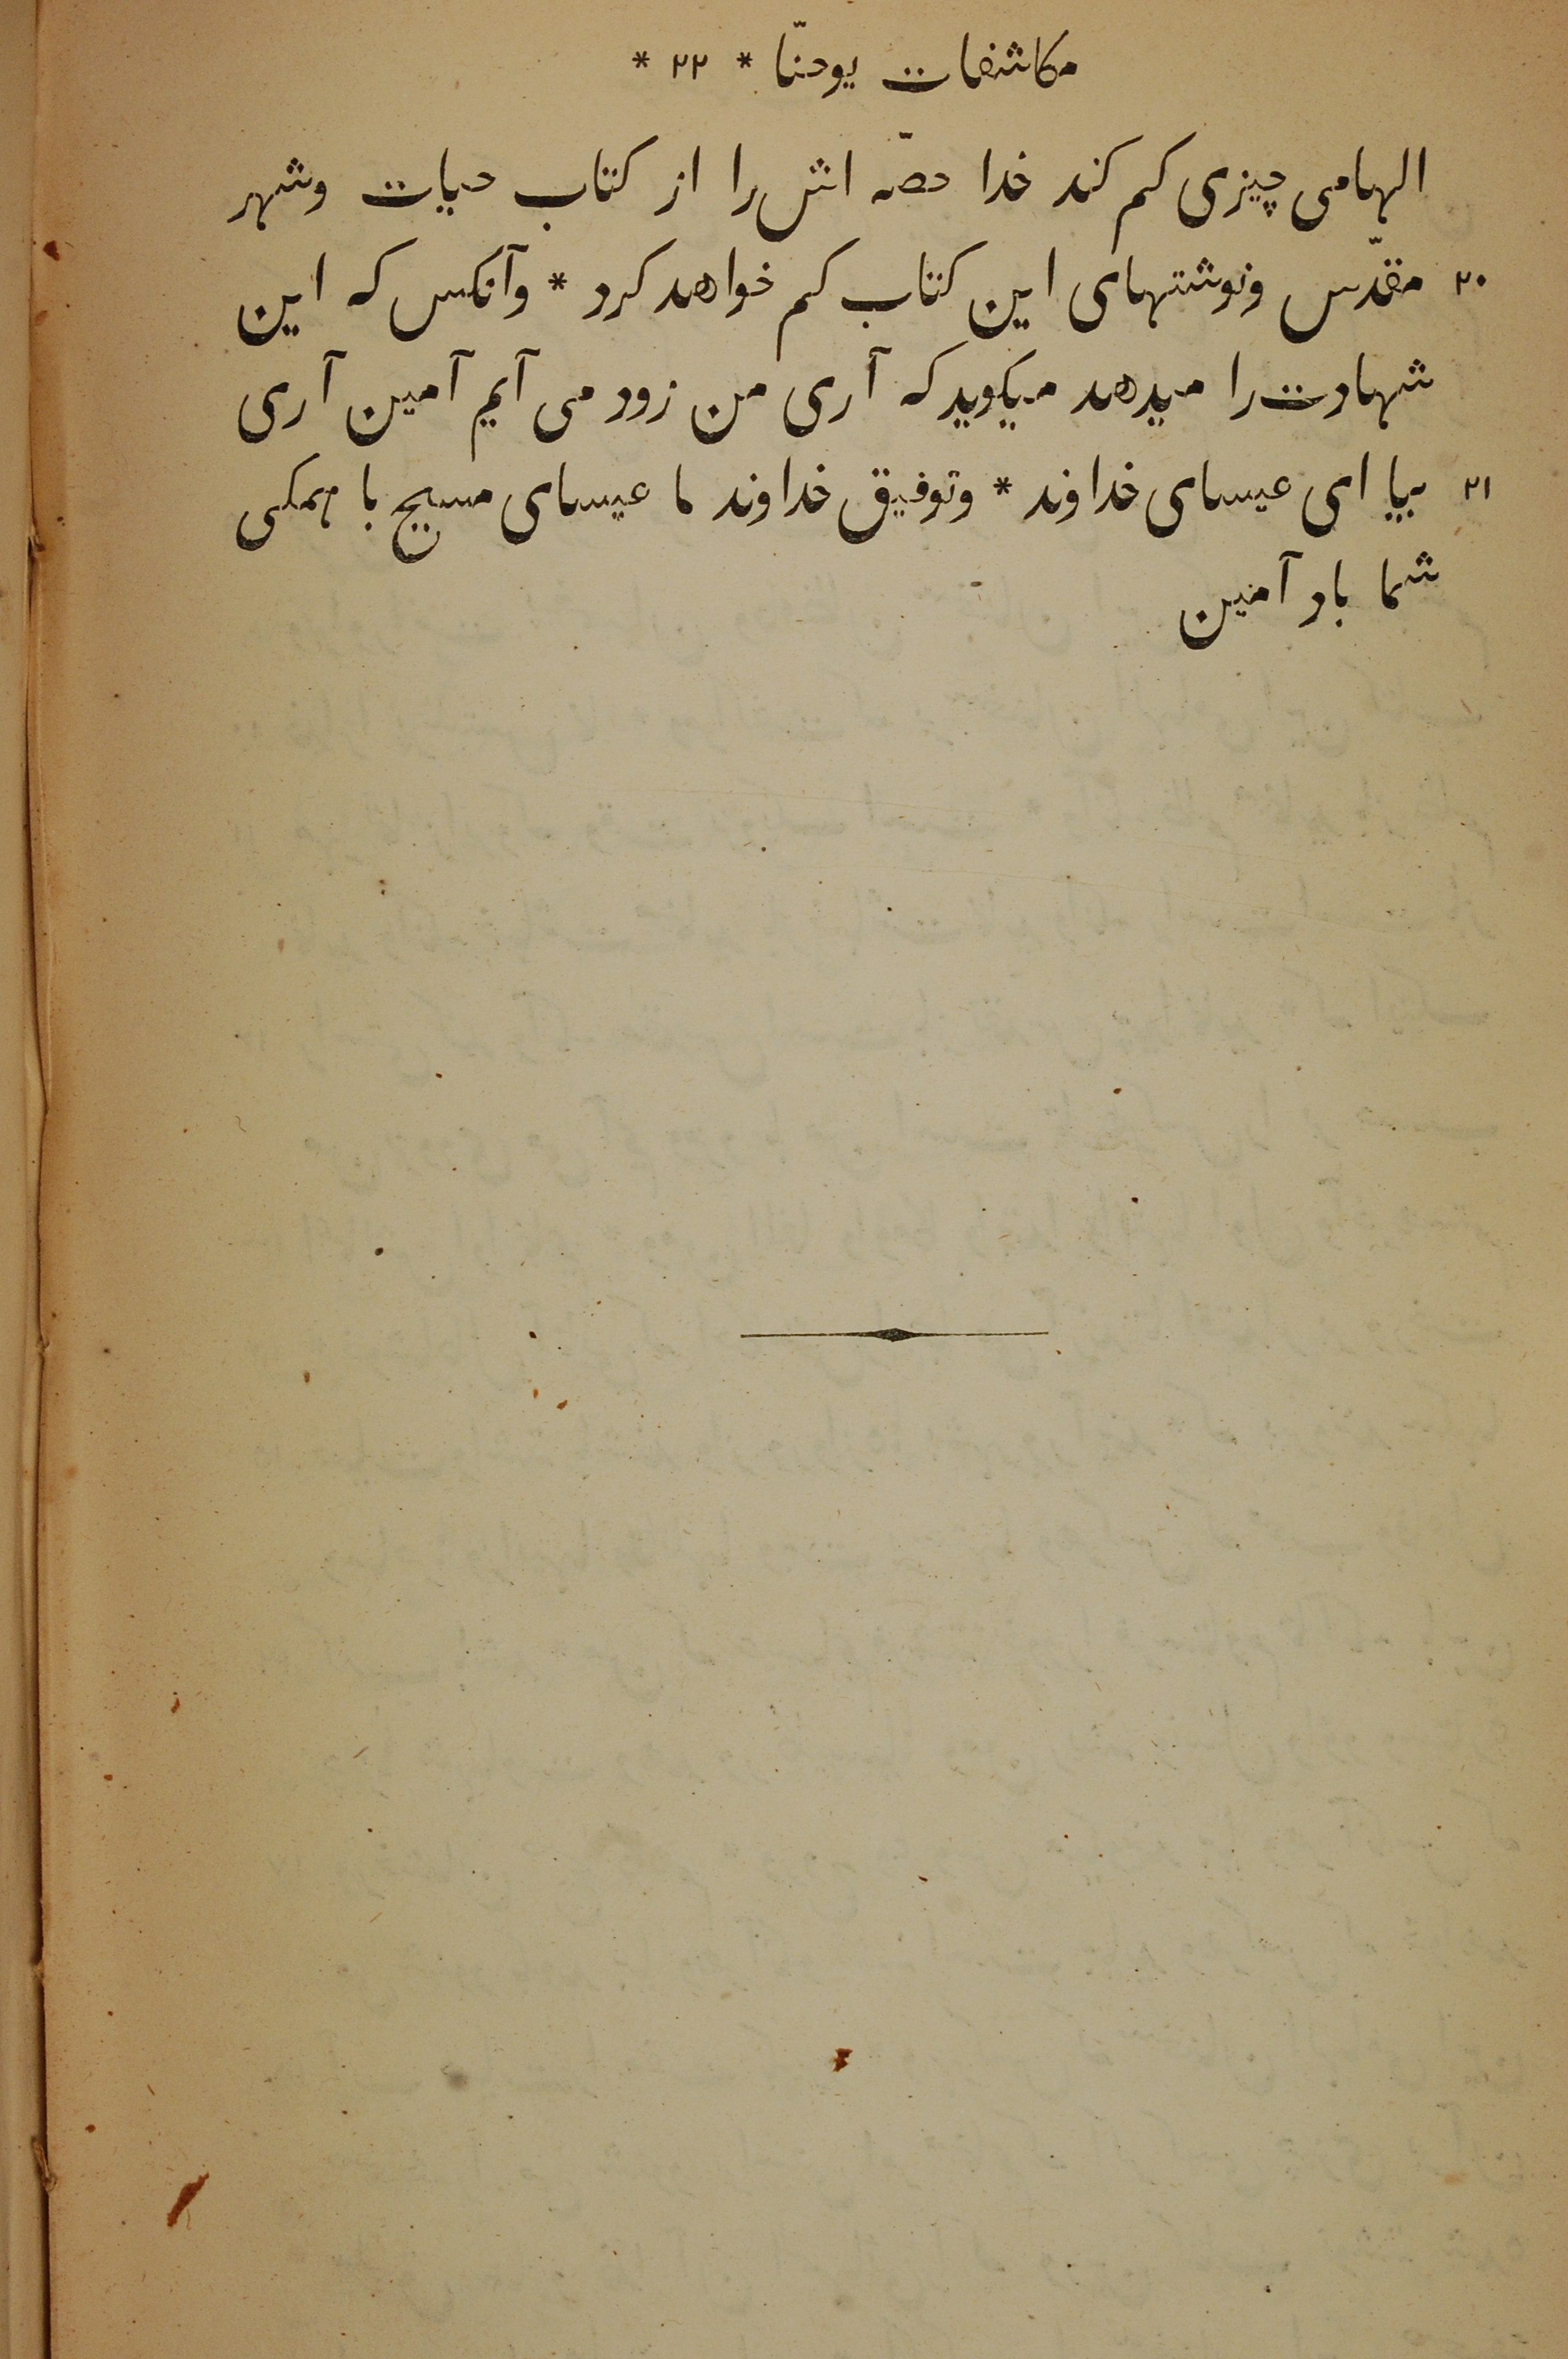 مکاشفات یوحنّا * ۲۲ *
الهامی چیزی کم کند خدا حصّه اش را از کتاب حیات وشهر
۲۰ مقدّس ونوشتهای این کتاب کم خواهد کرد * وآنکس که این
شهادت را میدهد میکوید که آری من زود می آیم آمین آری
۲۱ بیا ای عیسای خداوند * وتوفیق خداوند ما عیسای مسیح با همکی
شما باد آمین